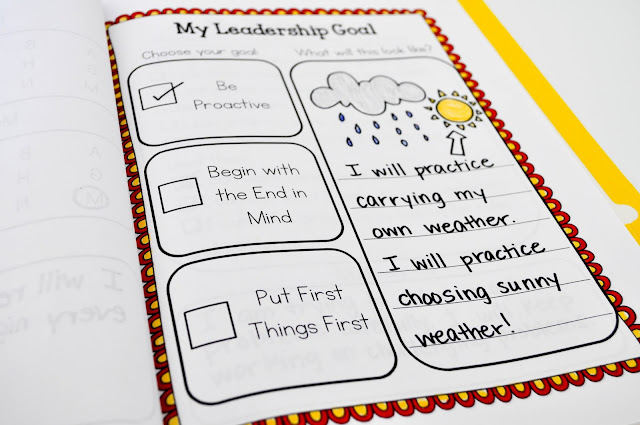 My Leadership Goal
Choose your goal:
What will this look like?
Be
Proactive
Begin with
the End in
Mind
Put First
Things First
I will practice
carrying my
own weather.
I will practice
choosing sunny
weather!